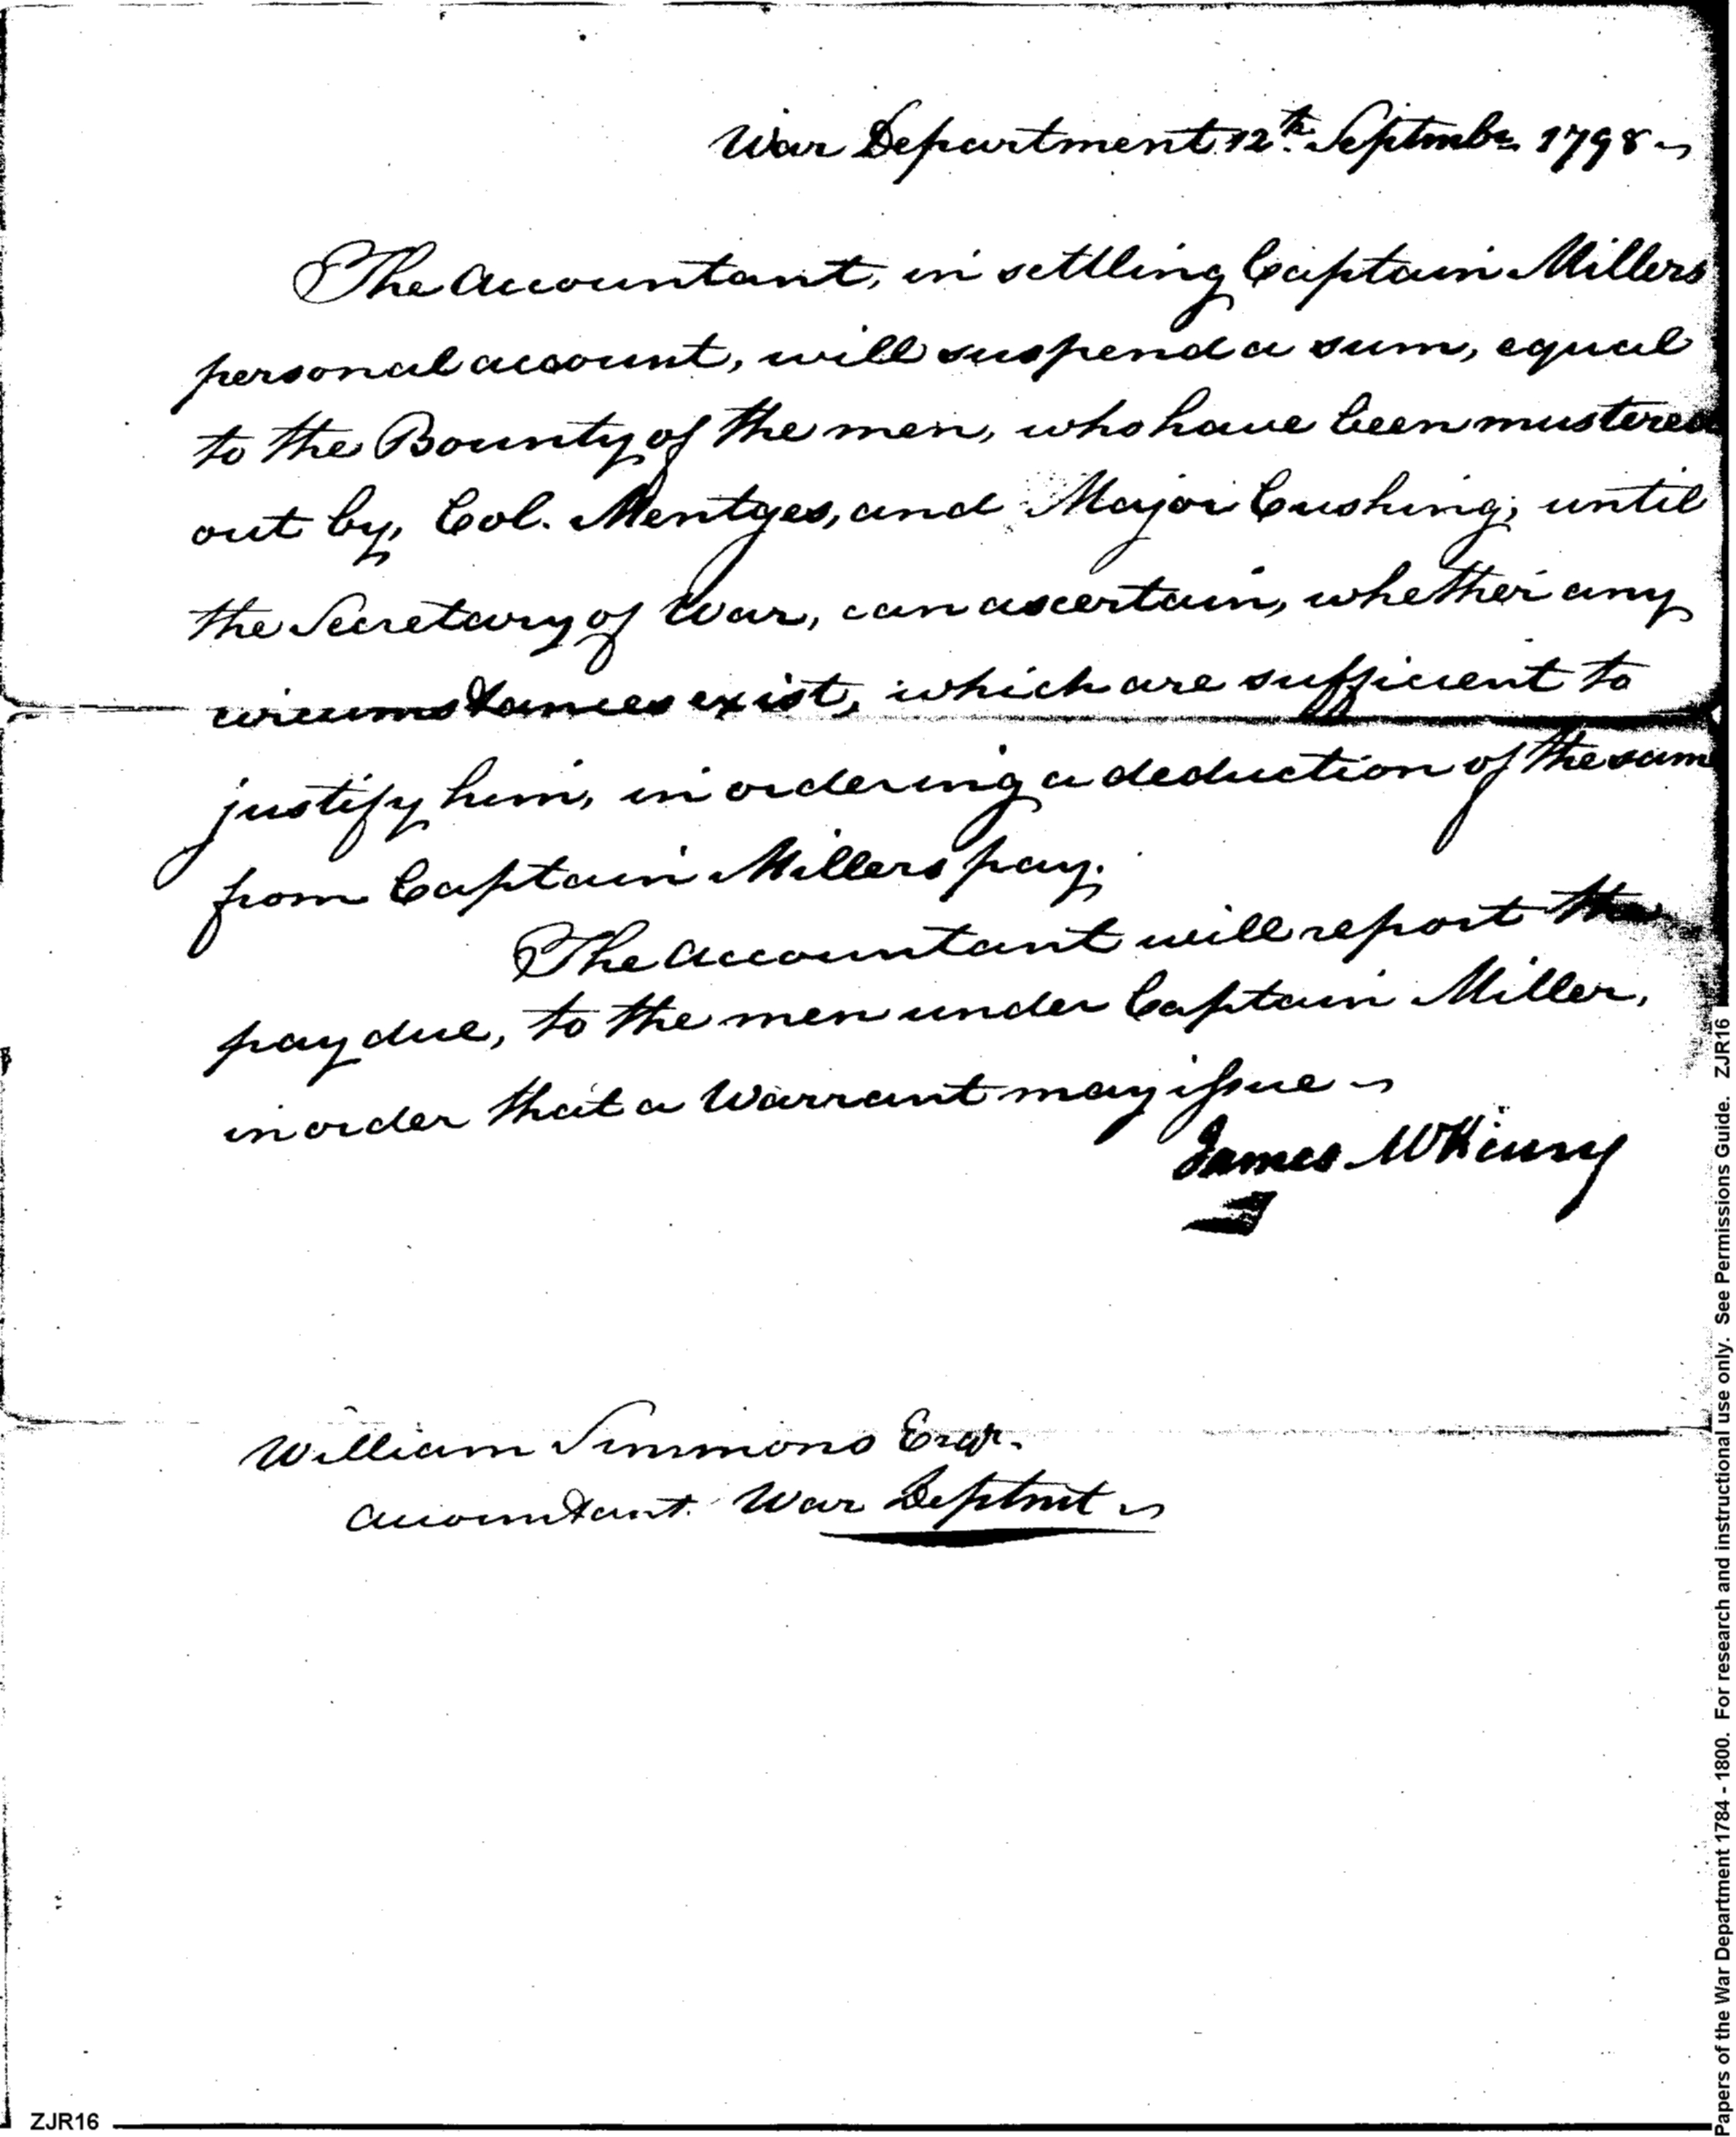 War Department 12th. Septmbr. 1798
The Accountant, in settling Captain Millers
personal account, will suspend a sum, equal
to the Bounty of the men, who have been mustered
out by, Col. Mentges, and Major Cushing; until
the Secretary of War, can ascertain, whether any
circumstances exist, which are sufficient to
justify him, in ordering a deduction of the same
from Captain Millers pay.
The Accountant will report the
pay due, to the men under Captain Miller,
in order that a Warrant may issue
James McHenry
William Simmons Esqr.
Accountant War Deptmt
ZJR16
Papers of the War Department 1784 - 1800. For research and instructional use only. See Permissions Guide. ZJR16